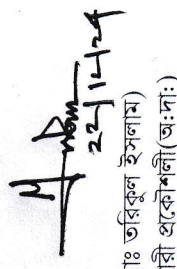 ২২/১২/২৪
মোঃ তরিকুল ইসলাম)
রী প্রকৌশলী(অঃদাঃ)